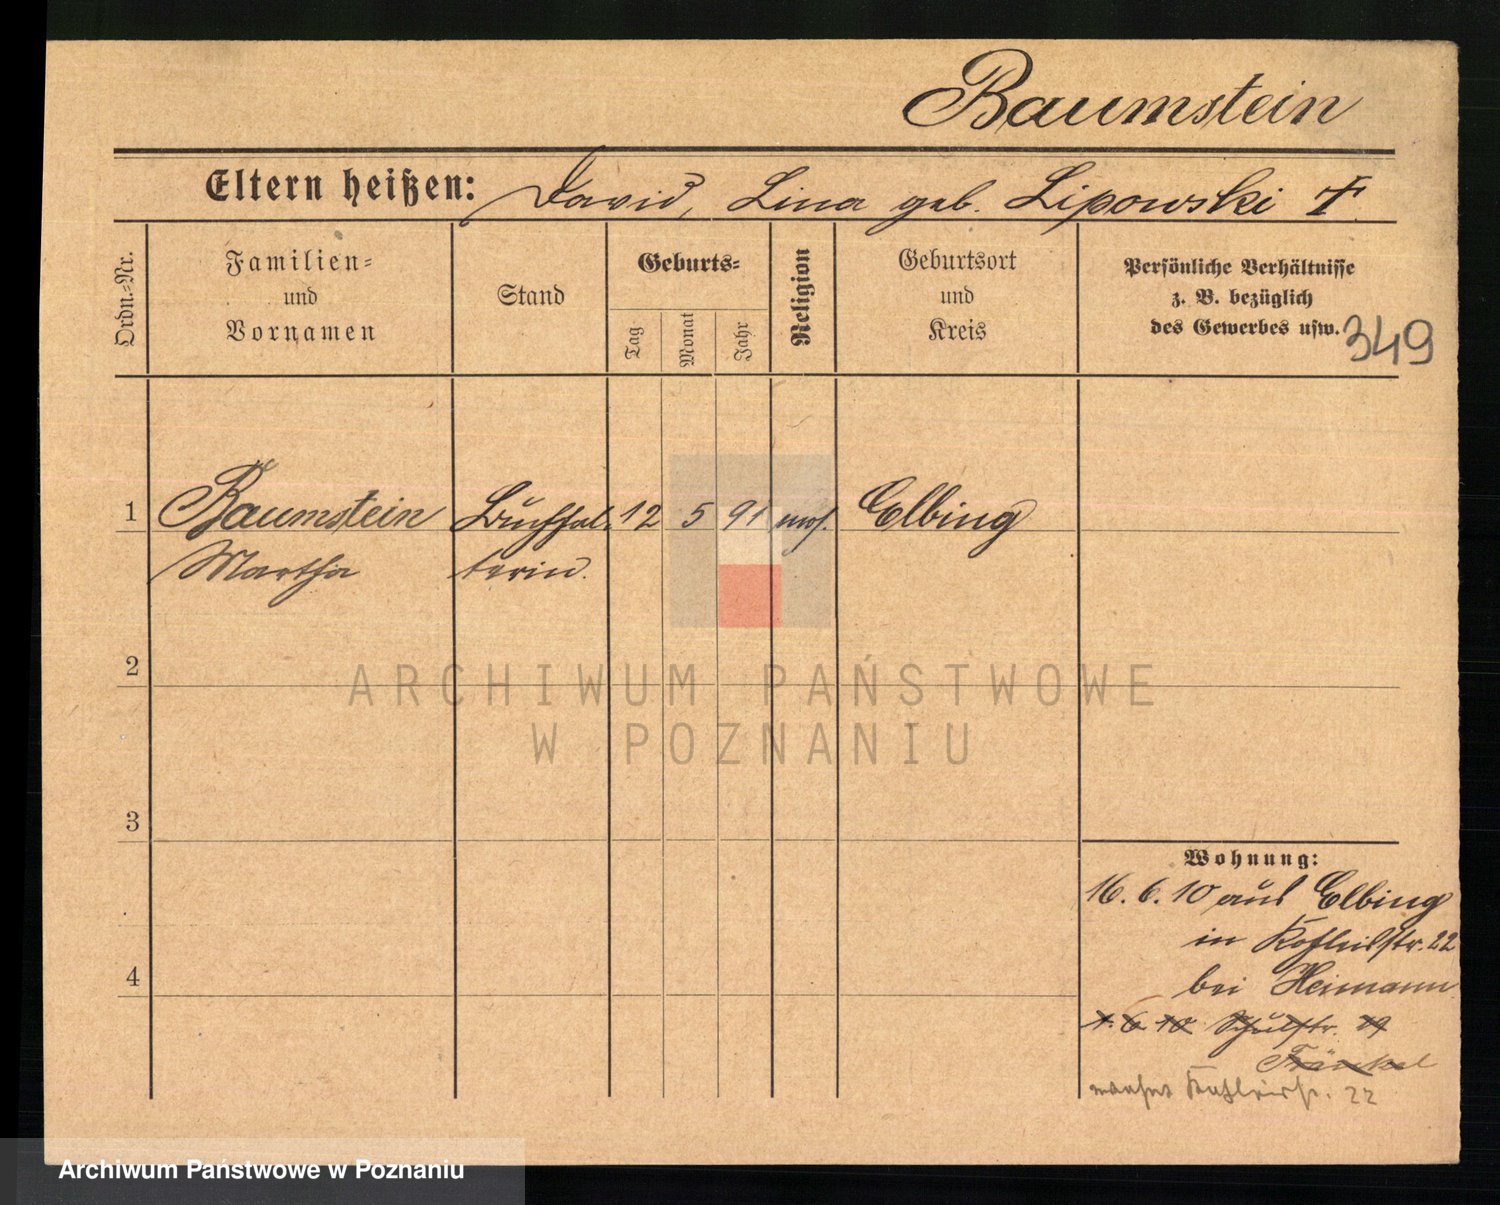 Baumstein
Eltern heißen: David, Lina geb. Lipowski †
Ordn.=Nr.
Familien=
und
Vornamen
Stand
Geburts=
Tag
Monat
Jahr
Religion
Geburtsort
und
Kreis
Persönliche Verhältnisse
z. B. bezüglich
des Gewerbes usw.
349
1 Baumstein Buchhal= 12 5 91 mos. Elbing
Martha terin.
2
3
4
Wohnung:
16. 6. 10 aus Elbing
in 22
bei Heimann
1. 6. 10 Schulstr. 19
Fränkel
wohnt 22
ARCHIWUM PAŃSTWOWE
W POZNANIU
Archiwum Państwowe w Poznaniu